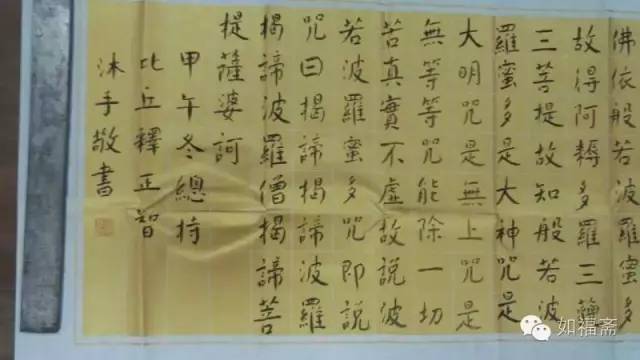 佛依般若波羅蜜多
故得阿耨多羅三藐
三菩提故知般若波
羅蜜多是大神咒是
大明咒是無上咒是
無等等咒能除一切
苦真實不虛故說波
若波羅蜜多咒即說
咒曰揭諦揭諦波羅
揭諦波羅僧揭諦菩
提薩婆訶
甲午冬總持
比丘釋正智
沐手敬書
如福斋